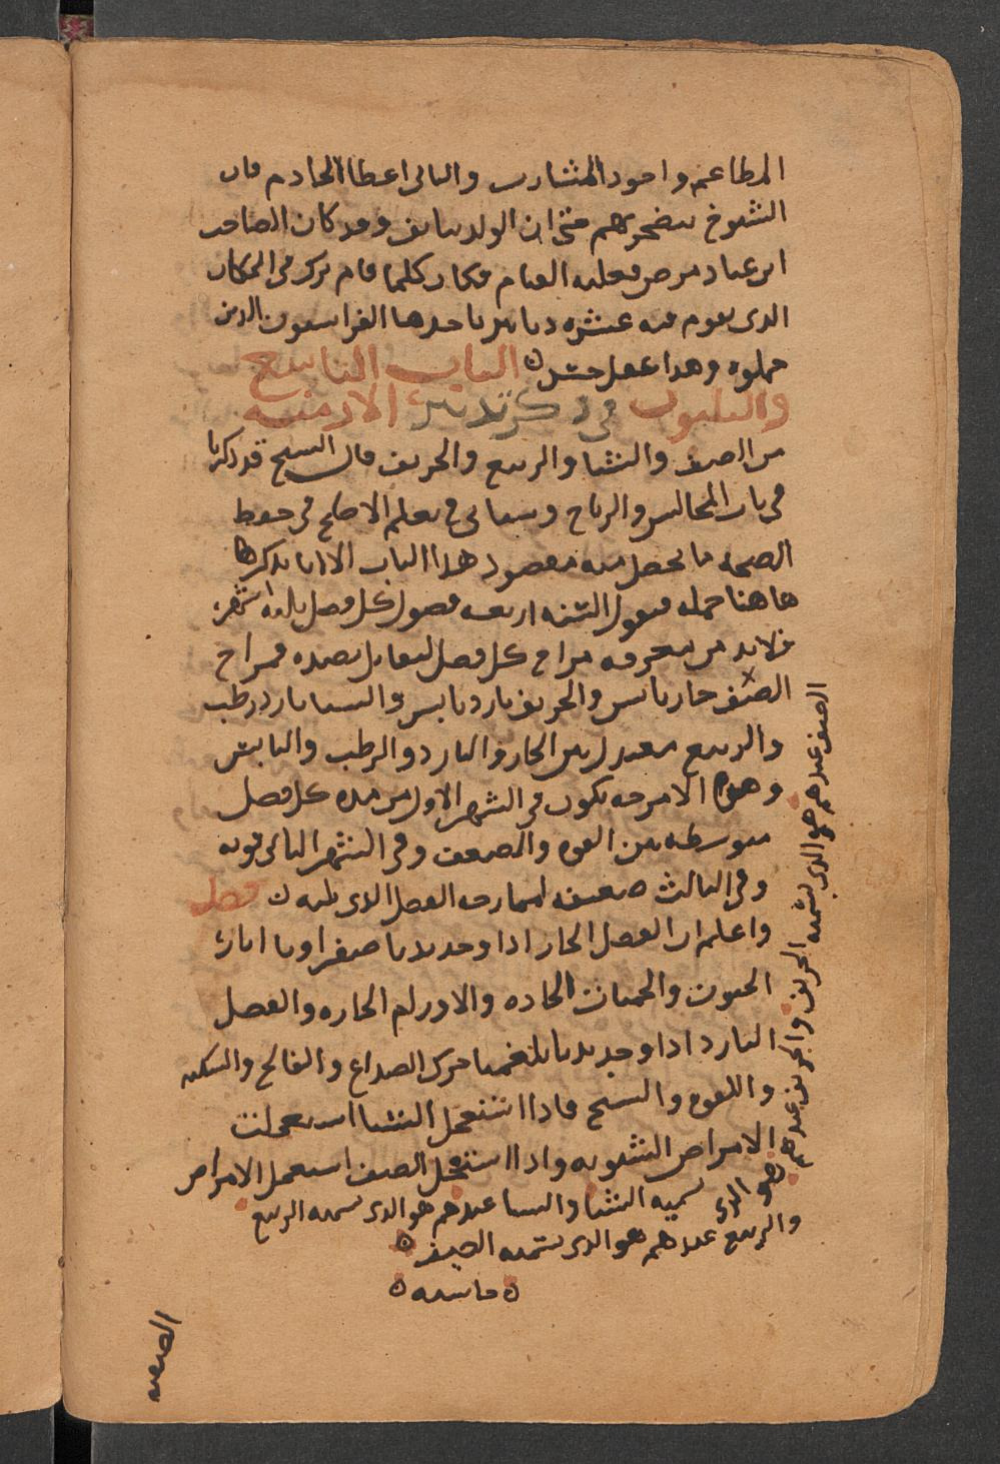 المطاعم واجود المشارب والثانى اعطا الخادم فان
الشيوخ يتضجر بهم حتى ان الولد يتأفف وقد كان الصاحب
ابن عباد مرض فعليه القيام فكان كلما قام ترك فى المكان
الذى يقوم منه عشره دنانير ياخدها الفراشون الدين
حملوه وهدا عقل حسن الباب التاسع
والثلثون فى دكر تدبير الازمنه
من الصيف والشتا والربيع والخريف قال الشيخ قد دكرنا
فى باب المجالس والرياح وسياتى فى تعليم الاصلح فى حفظ
الصحه ما يحصل منه مقصود هدا الباب الا انا ندكرها
هاهنا جمله فنقول السنه اربعه فصول كل فصل ثلثه اشهر
فلابد من معرفه مزاج كل فصل ليقابل بضده فمزاج
الصيف حار يابس والخريف بارد يابس والشتا بارد رطب
والربيع معتدل بين الحار والبارد والرطب واليابس
وهده الامزجه تكون فى الشهر الاول من مده كل فصل
متوسطه بين القوه والضعف وفى الشهر الثانى قويه
وفى الثالث ضعيفه لممازجه الفصل الدى يليه فصل
واعلم ان الفصل الحار ادا وجد بدنا صفراويا اثار
الجنون والحميات الحاده والاورام الحاره والفصل
البارد ادا وجد بدنا بلغميا حرك الصداع والفالج والسكته
واللقوه والتشنج فادا استعجل الشتا استعجلت
الامراض الشتويه وادا استعجل الصيف استعجل الامراض
الصيف عندهم هو الدى نسميه الخريف والخريف عندهم هو الدى
نسميه الشتا والشتا عندهم هو الدى نسميه الربيع
والربيع عندهم هو الدى نسميه الصيف
حاشيه
الصيفيه